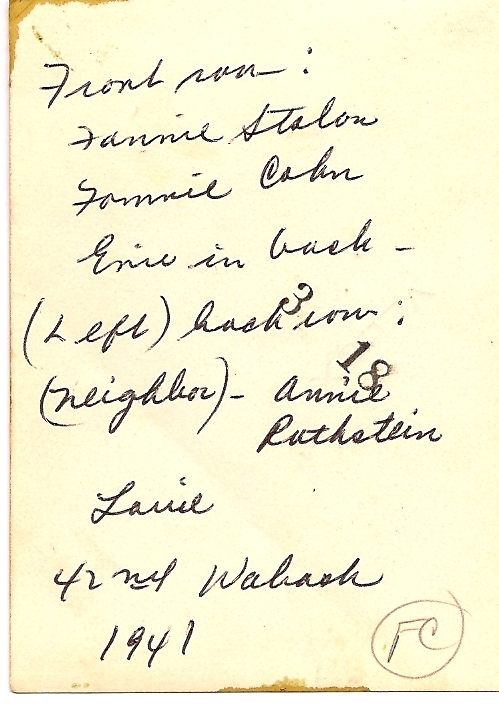 Front row:
Fannie Stolon
Fannie Cohn
Ernie in back -
(Left) back row:
3
18
(neighbor) - Annie
Rothstein
Louie
42nd Wabash
1941
FC